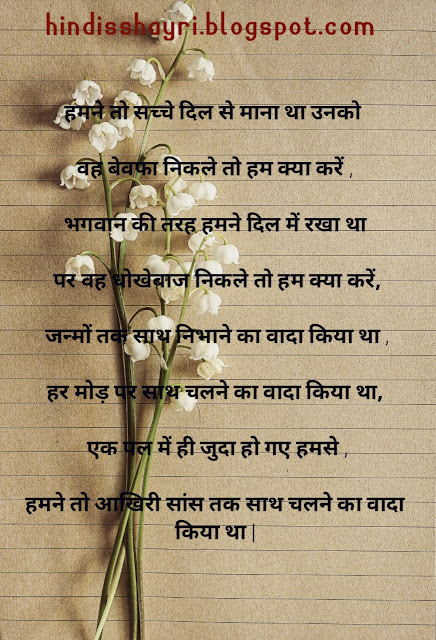 hindisshayri.blogspot.com
हमने तो सच्चे दिल से माना था उनको
वह बेवफा निकले तो हम क्या करें ,
भगवान की तरह हमने दिल में रखा था
पर वह धोखेबाज निकले तो हम क्या करें,
जन्मों तक साथ निभाने का वादा किया था ,
हर मोड़ पर साथ चलने का वादा किया था,
एक पल में ही जुदा हो गए हमसे ,
हमने तो आखिरी सांस तक साथ चलने का वादा
किया था |